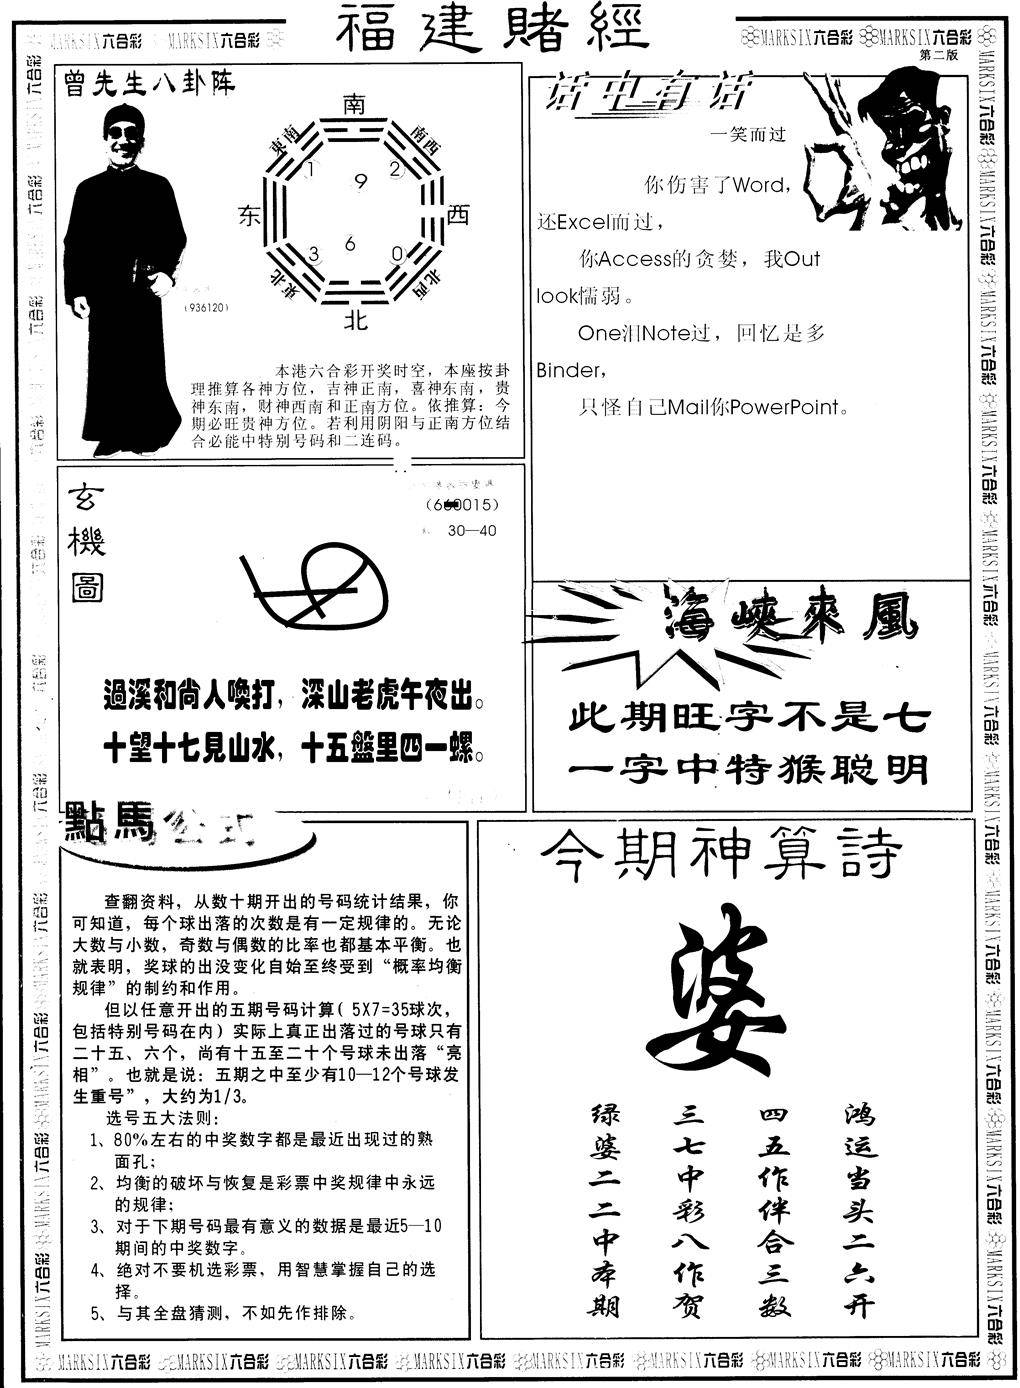 福建賭經
MARKSIX六合彩 MARKSIX六合彩
MARKSIX六合彩 MARKSIX六合彩
第二版
曾先生八卦阵
南
東南
南西
1
9
2
东
西
3
6
0
東北
北西
北
(936120)
本港六合彩开奖时空，本座按卦
理推算各神方位，吉神正南，喜神东南，贵
神东南，财神西南和正南方位。依推算：今
期必旺贵神方位。若利用阴阳与正南方位结
合必能中特别号码和二连码。
话中有话
一笑而过
你伤害了Word，
还Excel而过，
你Access的贪婪，我Out
look懦弱。
One泪Note过，回忆是多
Binder，
只怪自己Mail你PowerPoint。
玄機圖
30—40
過溪和尚人喚打，深山老虎午夜出。
十望十七見山水，十五盤里四一螺。
海峽來風
此期旺字不是七
一字中特猴聪明
點馬公式
查翻资料，从数十期开出的号码统计结果，你
可知道，每个球出落的次数是有一定规律的。无论
大数与小数，奇数与偶数的比率也都基本平衡。也
就表明，奖球的出没变化自始至终受到“概率均衡
规律”的制约和作用。
但以任意开出的五期号码计算( 5X7=35球次，
包括特别号码在内) 实际上真正出落过的号球只有
二十五、六个，尚有十五至二十个号球未出落“亮
相”。也就是说：五期之中至少有10—12个号球发
生重号”，大约为1/3。
选号五大法则：
1、80%左右的中奖数字都是最近出现过的熟
面孔；
2、均衡的破坏与恢复是彩票中奖规律中永远
的规律；
3、对于下期号码最有意义的数据是最近5—10
期间的中奖数字。
4、绝对不要机选彩票，用智慧掌握自己的选
择。
5、与其全盘猜测，不如先作排除。
今期神算詩
婆
鸿运当头二六开
四五作伴合三数
三七中彩八作贺
绿婆二二中本期
MARKSIX六合彩 MARKSIX六合彩 MARKSIX六合彩 MARKSIX六合彩 MARKSIX六合彩 MARKSIX六合彩 MARKSIX六合彩 MARKSIX六合彩